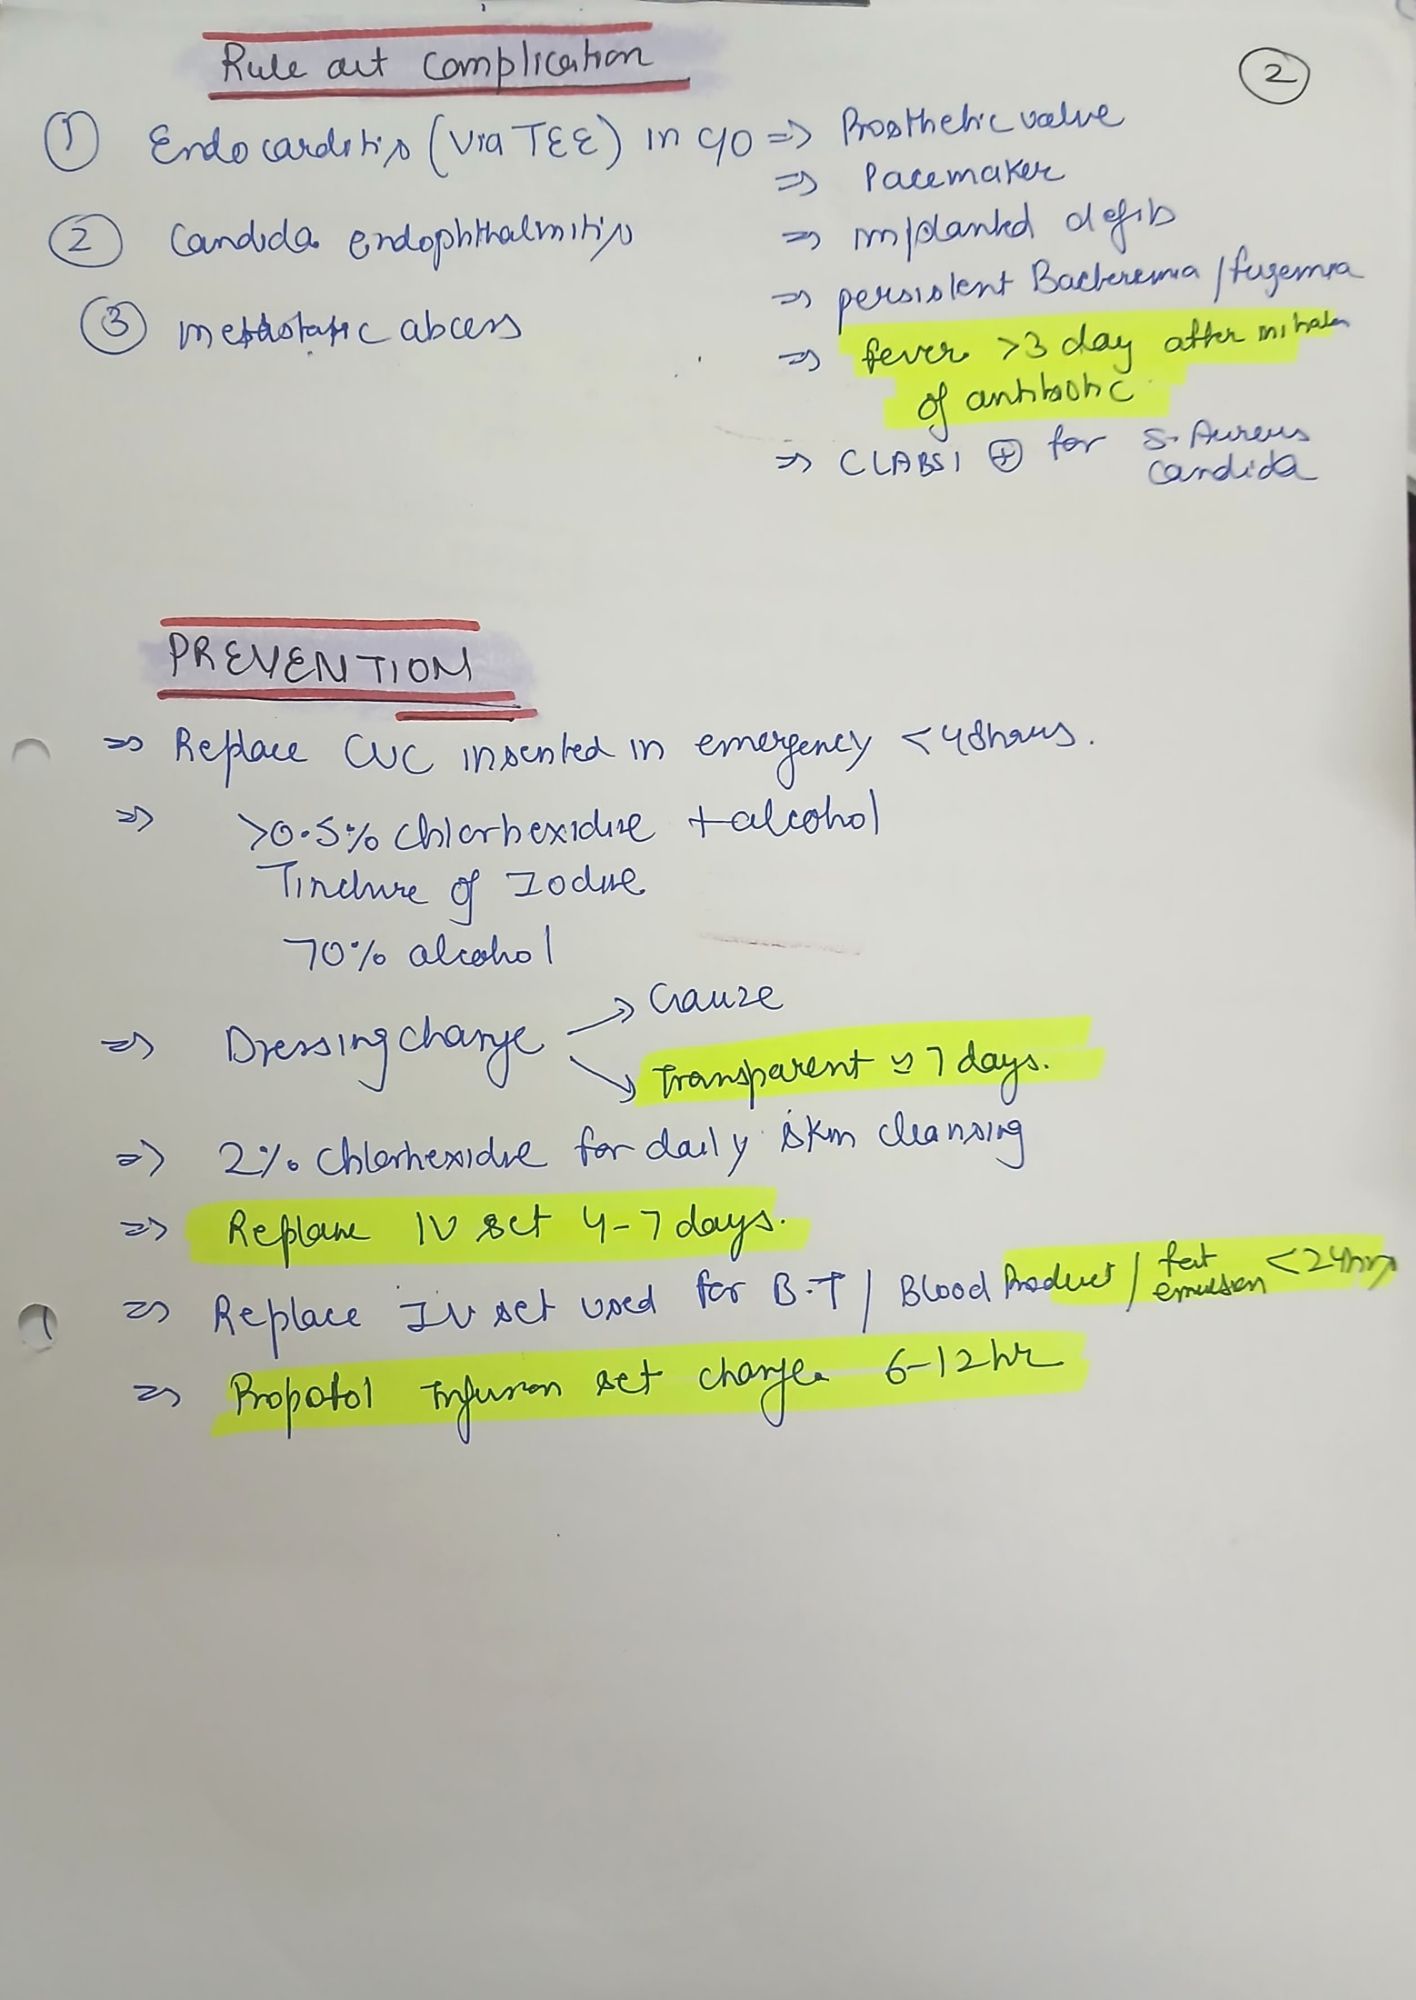 Rule out Complication
2
① Endocarditis (via TEE) in c/o => Prosthetic valve
=> Pacemaker
② Candida endophthalmitis => implanted defib
=> persistent Bacteremia / fungemia
③ metastatic abcess
=> fever >3 day after initiation
of antibiotic
=> CLABSI ⊕ for S. Aureus
Candida
PREVENTION
=> Replace CVC inserted in emergency <48hours.
=> >0.5% chlorhexidine + alcohol
Tincture of Iodine
70% alcohol
=> Dressing change → Gauze
→ Transparent 7 days.
=> 2% chlorhexidine for daily skin cleansing
=> Replace IV set 4-7 days.
=> Replace IV set used for B.T / Blood Product / fat emulsion <24hrs
=> Propofol Infusion set change 6-12 hr